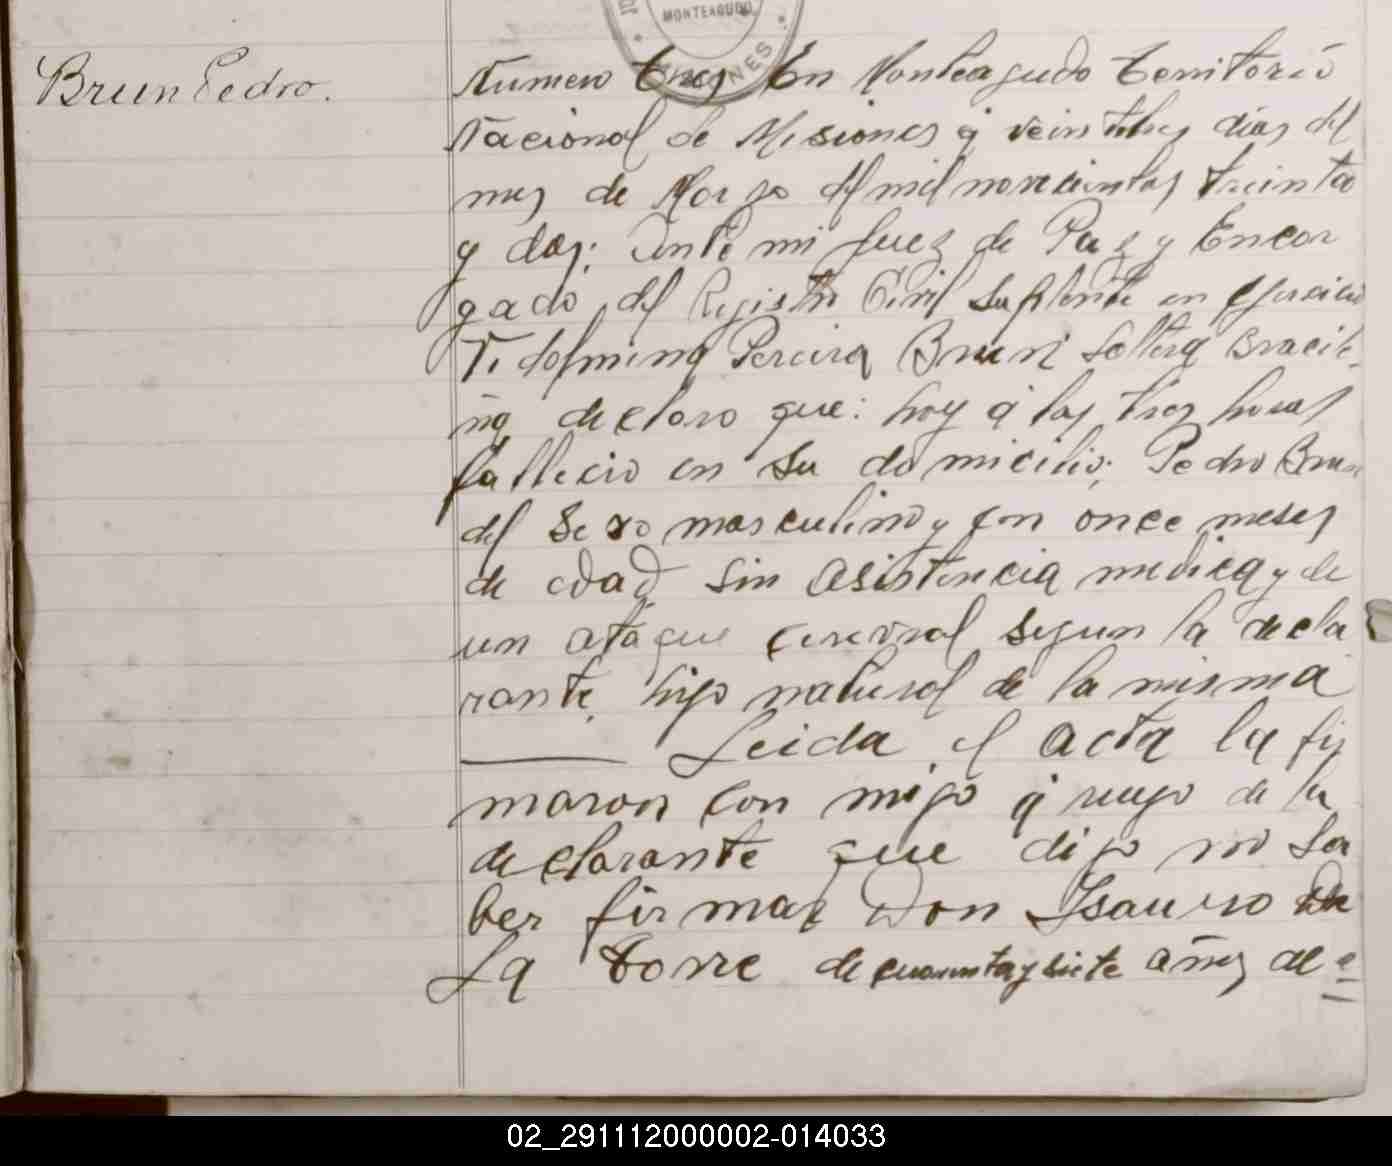 MONTEAGUDO
MISIONES
Brun Pedro.
Numero tres En Monteagudo Territorio
Nacional de Misiones á veintitres dias del
mes de Marzo del mil novecientos treinta
y dos; ante mi Juez de Paz y Encar
gado del Registro Civil Suplente en ejercicio
Pereira Brun Soltera Bracile-
ña declaro que: hoy á las tres horas
fallecio en su domicilio; Pedro Brun
del sexo masculino y con once meses
de edad sin asistencia medica y de
un ataque cerevral segun la decla
rante, hijo natural de la misma
Leida el acta la fir
maron con migo á ruego de la
declarante que dijo no sa
ber firmar Don Isauro De
La Torre de cuarenta y siete años de
02_291112000002-014033